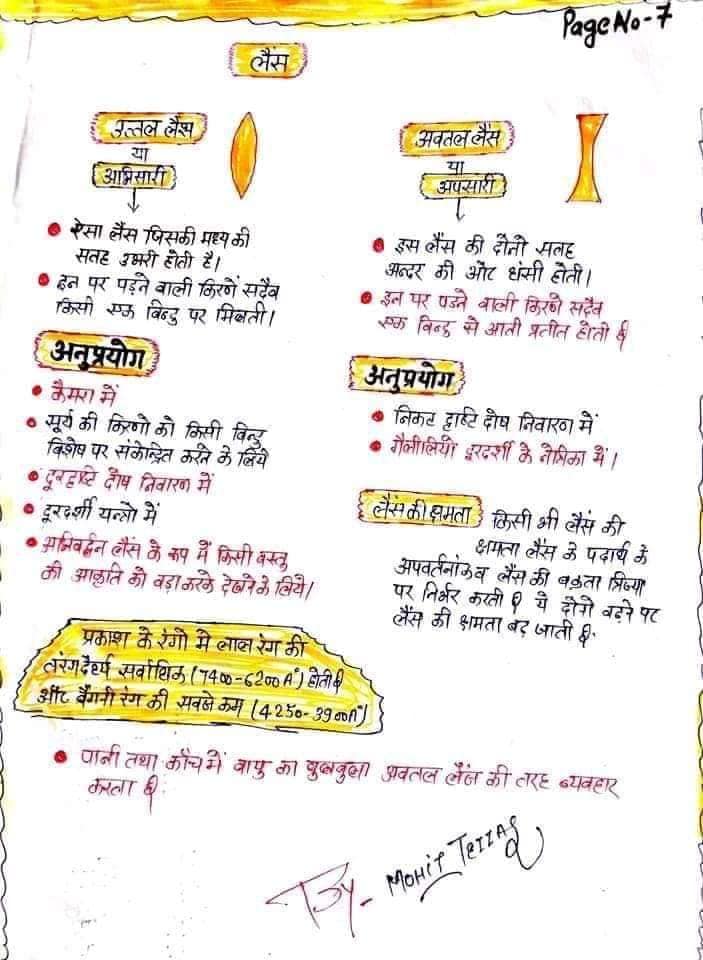 Page No-7
लैंस
उत्तल लैंस
या
अभिसारी
ऐसा लैंस जिसकी मध्य की
सतह उभरी होती है।
इन पर पड़ने वाली किरणें सदैव
किसी एक बिन्दु पर मिलती।
अनुप्रयोग
कैमरा में
सूर्य की किरणो को किसी बिन्दु
विशेष पर संकेन्द्रित करने के लिये
दूरदृष्टि दोष निवारण में
दूरदर्शी यन्त्रो में
अभिवर्द्धन लैंस के रूप में किसी वस्तु
की आकृति को बड़ा करके देखने के लिये।
अवतल लैंस
या
अपसारी
इस लैंस की दोनो सतह
अन्दर की ओर धंसी होती।
इन पर पडने वाली किरणे सदैव
एक बिन्दु से आती प्रतीत होती है
अनुप्रयोग
निकट दृष्टि दोष निवारण में
गैलीलियो दूरदर्शी के नेत्रिका में।
लैंस की क्षमता किसी भी लैंस की
क्षमता लैंस के पदार्थ के
अपवर्तनांक व लैंस की वक्रता त्रिज्या
पर निर्भर करती है ये दोनो बढ़ने पर
लैंस की क्षमता बढ़ जाती है
प्रकाश के रंगो में लाल रंग की
तरंगदैर्ध्य सर्वाधिक (7400-6200A°) होती है
और बैंगनी रंग की सबसे कम (4250-3900A°)
पानी तथा काँच में वायु का बुलबुला अवतल लैंस की तरह व्यवहार
करता है
By- MOHIT